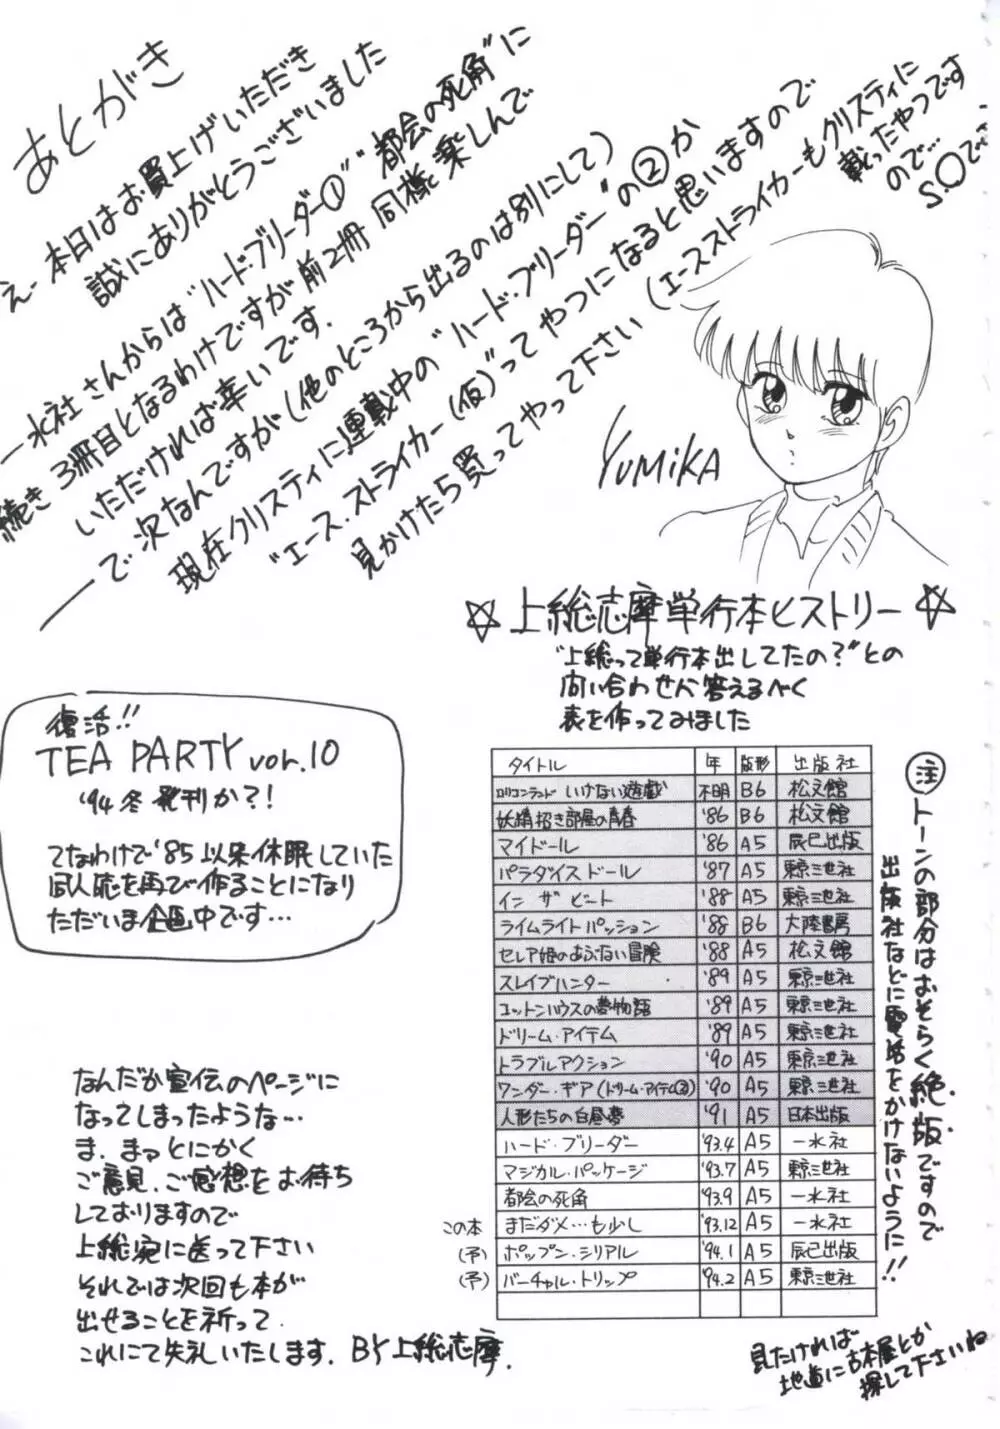 あとがき
え、本日はお買上げいただき
誠にありがとうございました
一水社さんからは"ハード・ブリーダー①""都会の死角"に
続き3冊目となるわけですが前2冊同様楽しんで
いただければ幸いです.
で次なんですが(他のところから出るのは別にして)
現在クリスティに連載中の"ハード・ブリーダー"の②か
"エース.ストライカー(仮)"ってやつになると思いますので
見かけたら買ってやって下さい(エースストライカーもクリスティに
載ったやつです
ので…
S.Oで
YUMiKA
☆上総志摩単行本ヒストリー☆
"上総って単行本出してたの?"との
問い合わせに答えるべく
表を作ってみました
復活!!
TEA PARTY vol.10
'94冬発刊か?!
てなわけで'85以来休眠していた
同人誌を再び作ることになり
ただいま企画中です…
タイトル 年 版形 出版社
ロリコンランド いけない遊戯 不明 B6 松文館
妖精招き部屋の青春 '86 B6 松文館
マイドール '86 A5 辰巳出版
パラダイスドール '87 A5 東京三世社
イン ザ ビート '88 A5 東京三世社
ライムライトパッション '88 B6 大陸書房
セレア姫のあぶない冒険 '88 A5 松文館
スレイブハンター '89 A5 東京三世社
コットンハウスの夢物語 '89 A5 東京三世社
ドリーム・アイテム '89 A5 東京三世社
トラブルアクション '90 A5 東京三世社
ワンダー・ギア(ドリーム・アイテム②) '90 A5 東京三世社
人形たちの白昼夢 '91 A5 日本出版
ハード・ブリーダー '93.4 A5 一水社
マジカル・パッケージ '93.7 A5 東京三世社
都会の死角 '93.9 A5 一水社
この本 まだダメ…も少し '93.12 A5 一水社
(予) ポップン・シリアル '94.1 A5 辰巳出版
(予) バーチャル・トリップ '94.2 A5 東京三世社
注 トーンの部分はおそらく絶版ですので
出版社などに電話をかけないように!!
見たければ
地道に古本屋とか
探して下さいね
なんだか宣伝のページに
なってしまったような…
ま、まっとにかく
ご意見、ご感想をお待ち
しておりますので
上総宛に送って下さい
それでは次回も本が
出せることを祈って.
これにて失礼いたします. BY上総志摩.